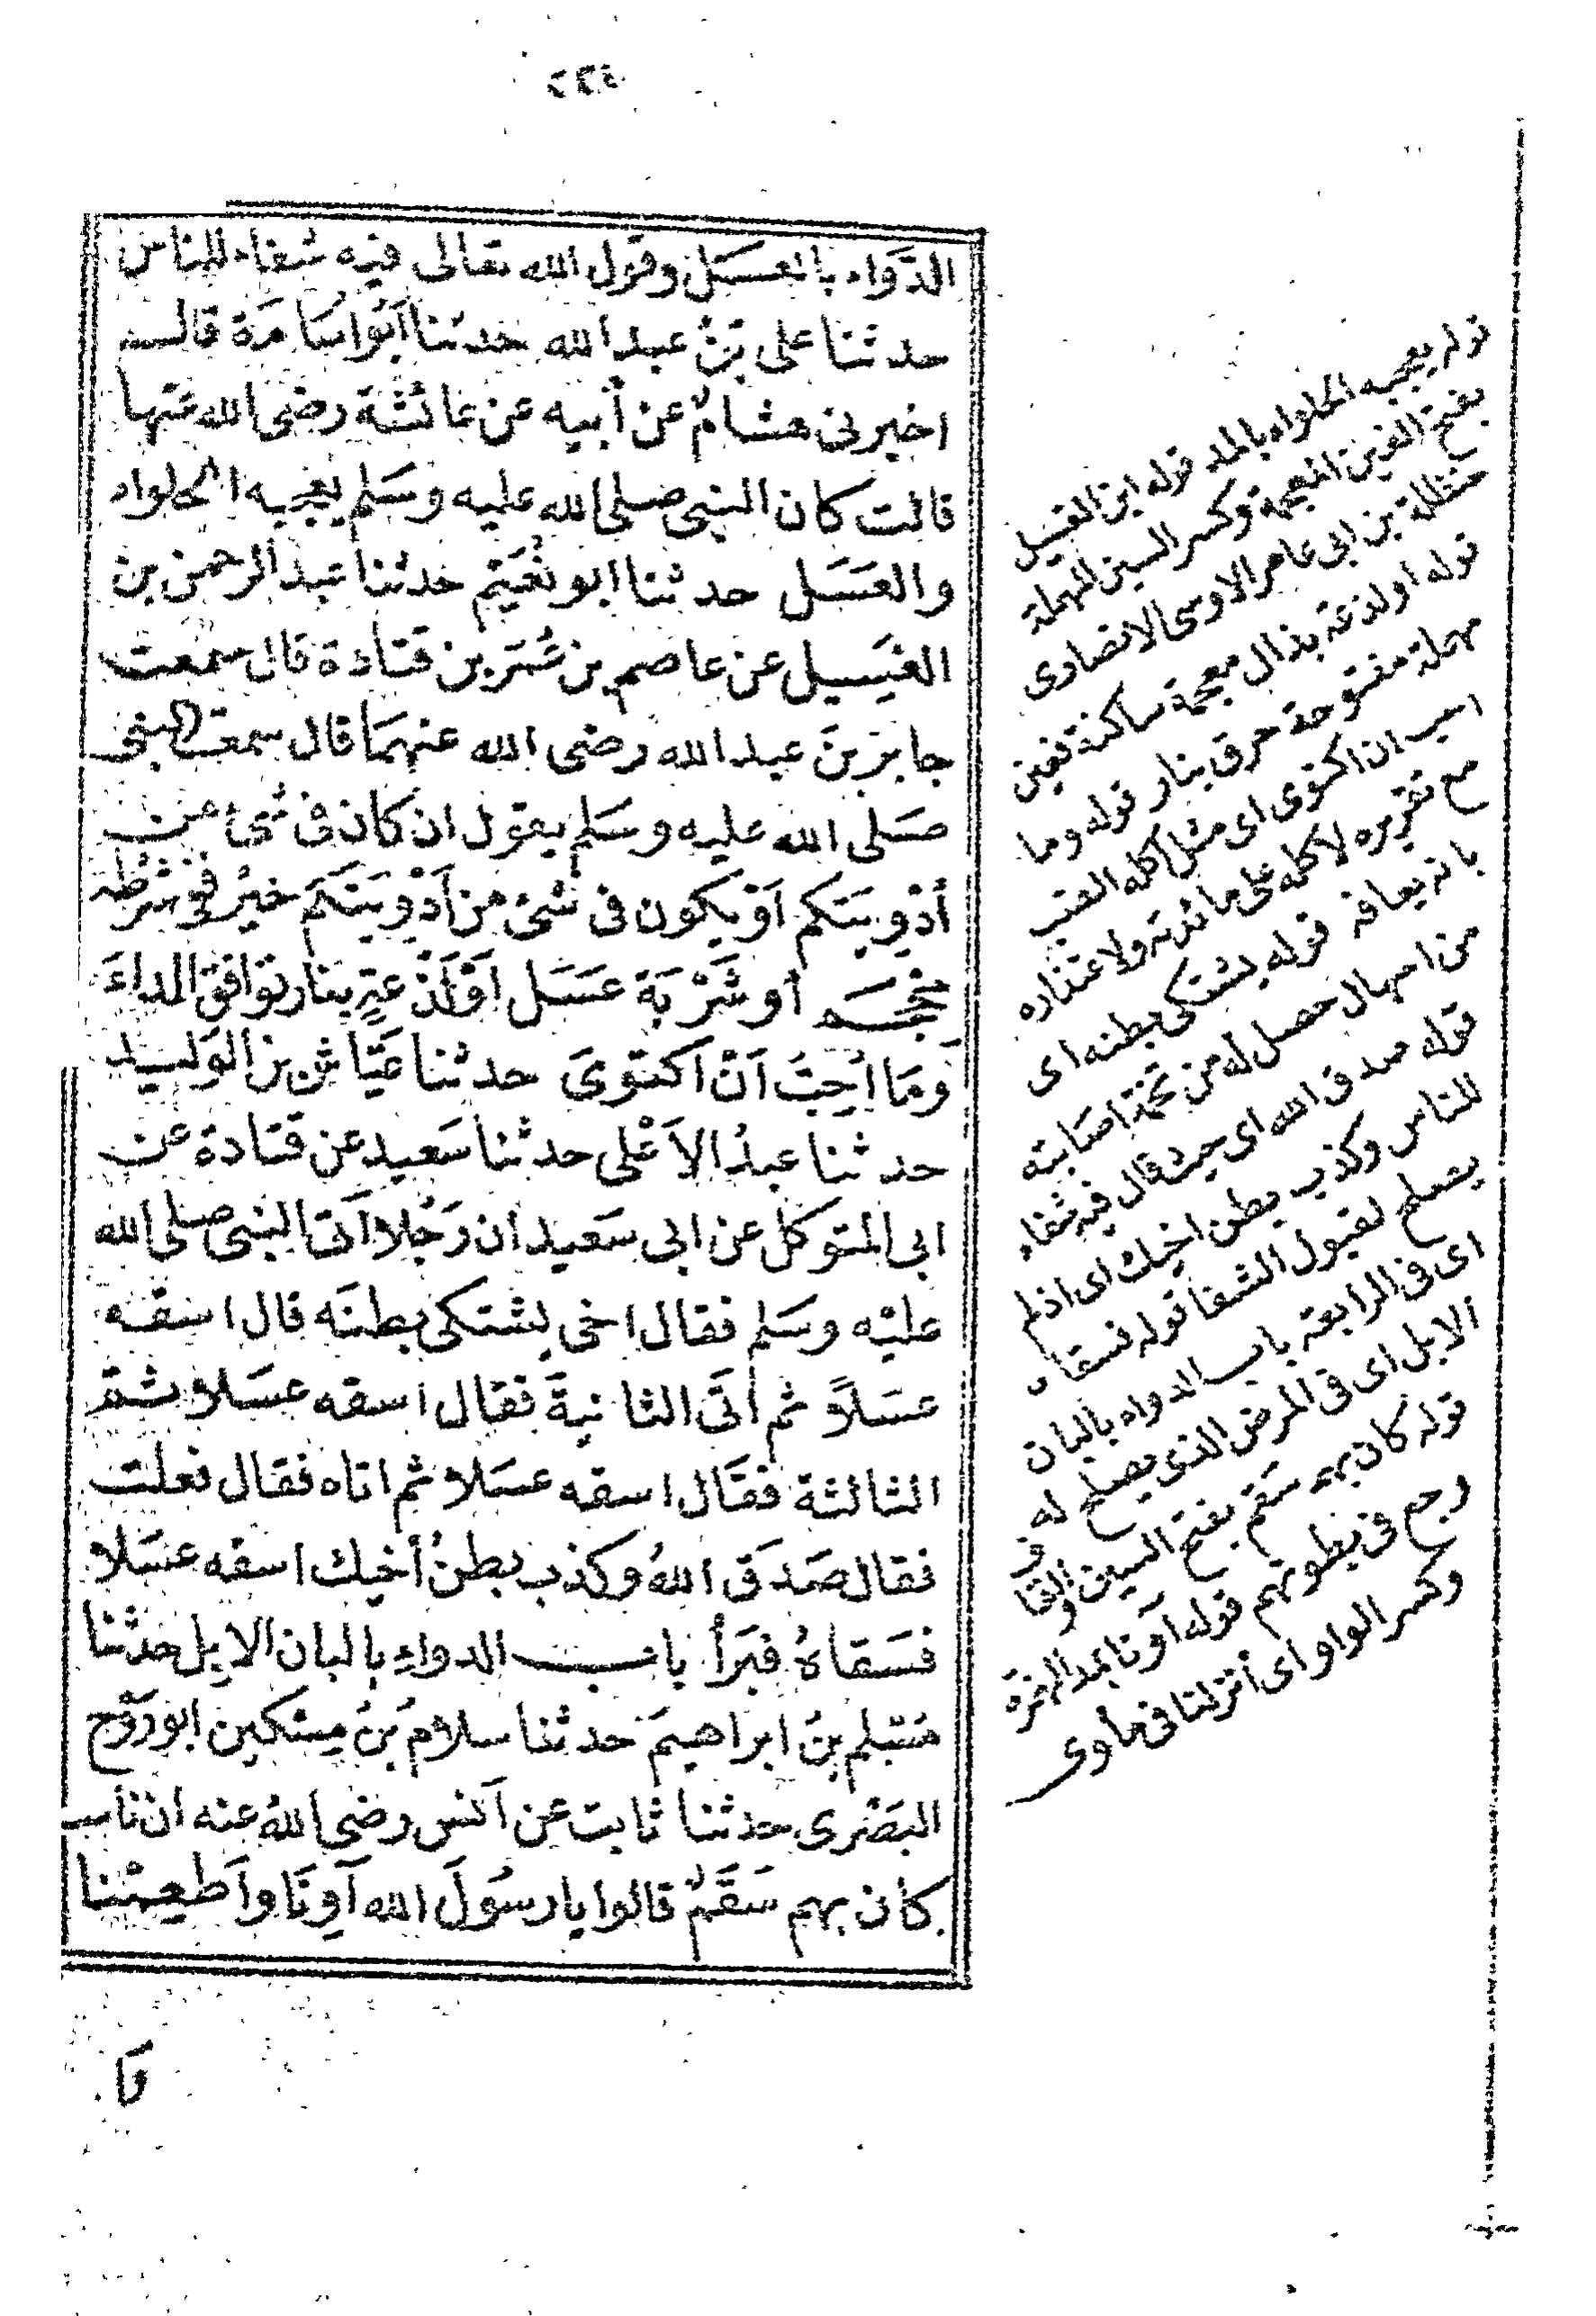 الدَّوَاء بالعسَل وقول الله تعالى فيه شفاء للناس
حدثنا على بنُ عبد الله حدثنا أبُو اُسَامَة قال
اخبرنى هشامٌ عن أبيه عن عائشة رضى الله عنها
قالت كان النبى صلى الله عليه وسَلم يعجبه الحلواء
والعَسَل حدثنا ابو نُعَيْم حدثنا عبد الرحمن بن
الغسيل عن عاصم بن عُمَر بن قتادة قال سمعت
جابر بنَ عبد الله رضى الله عنهمَا قال سمعت النبى
صَلى الله عليه وسَلم يقول ان كان فى شئ من
أدْوِيَتكم اَوْ يكون فى شئ من اَدْوِيَتكم خيْرٌ ففى شَرْطة
محْجَم أو شَرْبَة عَسَل اَوْ لَذْعَةٍ بنار توَافق الداءَ
وَمَا اُحِبُّ اَنْ اَكتوىَ حدثنا عَيَّاش بن الوَليد
حدثنا عبدُ الاَعْلى حدثنا سَعيد عن قتادة عن
ابى المتوَكل عن ابى سَعيد ان رَجُلا اَتى النبى صلى الله
عليْه وسَلم فقال اخى يشتكى بطنَه قال اسقه
عسَلاً ثم أتَى الثانيةَ فقال اسقه عسَلا ثمَّ
الثالثة فقَال اسقه عسَلا ثم اتاه فقال فعلت
فقال صَدَق اللهُ وكذب بطنُ أخيك اسقه عسَلا
فسَقاهُ فبَرَأ باب الدواءِ بالبان الابل حدثنا
مُسْلم بنُ ابراهيمَ حدثنا سلامُ بنُ مِسْكين ابو رَوْح
البَصْرى حدثنا ثابت عن اَنس رضى اللهُ عنه ان ناسا
كان بهم سَقَمٌ قالوا يا رسُولَ الله آوِنَا واَطعِمْنا
فا
قوله يعجبه الحلواء بالمد قوله ابن الغسيل
بفتح الغين المعجمة وكسر السين المهملة
حنظلة بن ابى عامر الاوسى الانصارى
قوله او لذعة بذال معجمة ساكنة فعين
مهملة مفتوحة حرق بنار قوله وما
احب ان اكتوى اى مثل اكله الضب
مع تقريره لاكله على مائدته ولاعتذاره
بانه يعافه قوله يشتكى بطنه اى
من اسهال حصل له من تخمة اصابته
قوله صدق الله اى حيث قال فيه شفاء
للناس وكذب بطن اخيك اى اذ لم
يصلح لقبول الشفا قوله فسقاه
اى فى الرابعة باب الدواء بالبان
الابل اى فى المرض الذى يصلح له
قوله كان بهم سَقم بفتح السين والقاف
وجع فى بطونهم قوله آونا بمد الهمزة
وكسر الواو اى أنزلنا فى مأوى